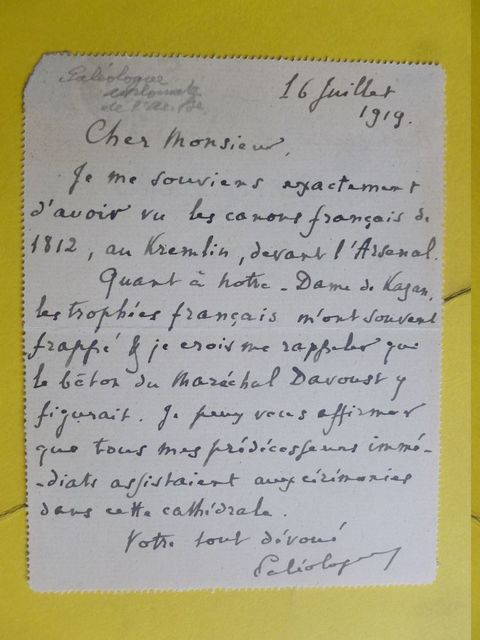 Paléologue
diplomate
de l'Ac. Fse
16 Juillet
1919.
Cher Monsieur,
Je me souviens exactement
d'avoir vu les canons français de
1812, au Kremlin, devant l'Arsenal.
Quant à Notre-Dame de Kazan,
les trophées français m'ont souvent
frappé & je crois me rappeler que
le bâton du Maréchal Davoust y
figurait. Je peux vous affirmer
que tous mes prédécesseurs immé-
-diats assistaient aux cérémonies
dans cette cathédrale.
Votre tout dévoué
Paléologue